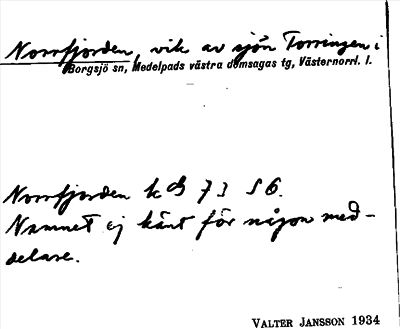 Norrfjorden, vik av sjön Torringen i
Borgsjö sn, Medelpads västra domsagas tg, Västernorrl. l.
Norrfjorden k 73 S6.
Namnet ej känt för någon med-
delare.
VALTER JANSSON 1934